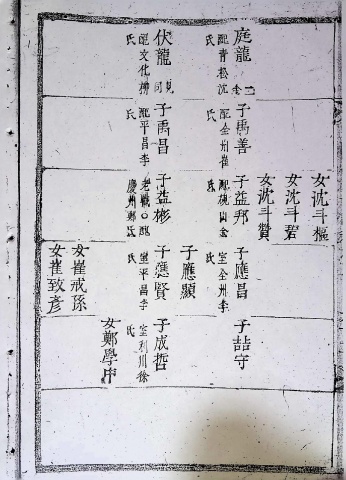 庭龍
配青松沈氏
子禹善
配全州崔氏
子益邦
女沈斗樞
女沈斗碧
女沈斗賛
子應昌
室全州李氏
子喆守
子應顯
伏龍
配文化柳氏
子禹昌
配平昌李氏
子益彬
慶州鄭氏
子應賢
室平昌李氏
子成哲
室利川徐氏
女鄭學中
女崔戒孫
女崔致彦